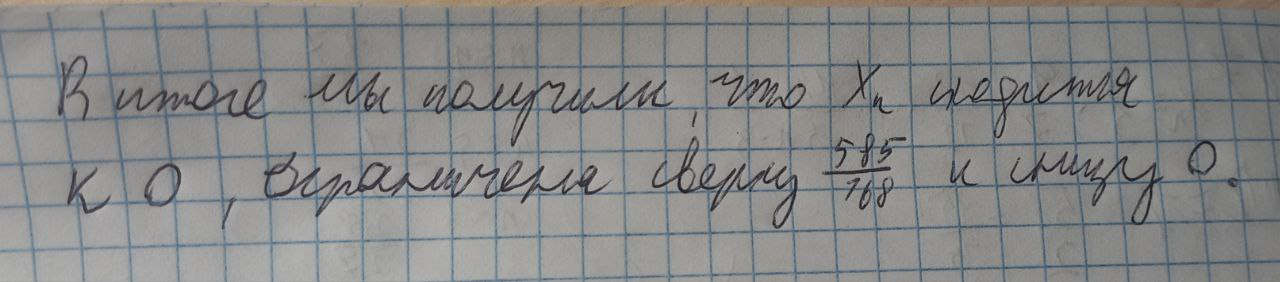 В итоге мы получили, что Xₙ сходится
к 0, ограничена сверху 585/768 и снизу 0.